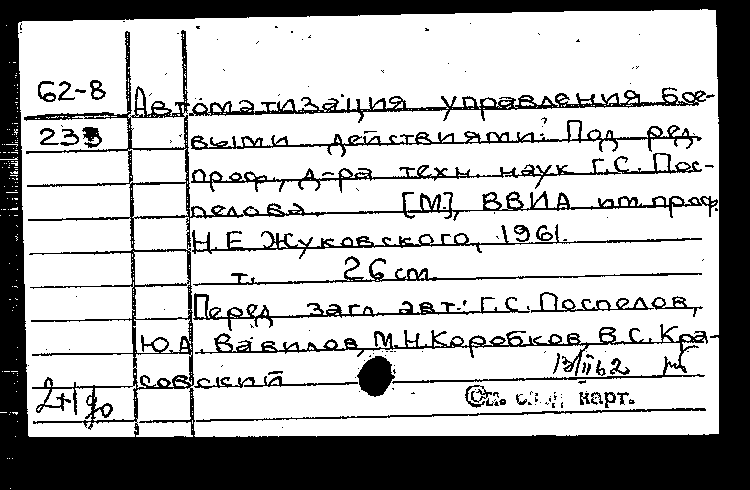 62-8
233
Автоматизация управления бое-
выми действиями. Под ред.
проф., д-ра техн. наук Г.С. Пос-
пелова. [М.], ВВИА им. проф.
Н.Е. Жуковского, 1961.
т. 26 см.
Перед загл. авт.: Г.С. Поспелов,
Ю.А. Вавилов, М.Н. Коробков, В.С. Кра-
совский
13/II 62
2+1 до
См. след. карт.